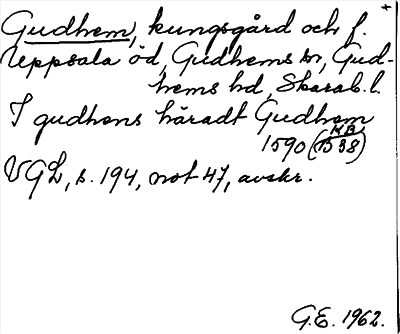 Gudhem, kungsgård och f.
Uppsala öd, Gudhems sn, Gud-
hems hd, Skarab. l.
I gudhens häradt Gudhem
1590 (1538)
KB
VGL, s. 194, not 47, avskr.
G.E. 1962.